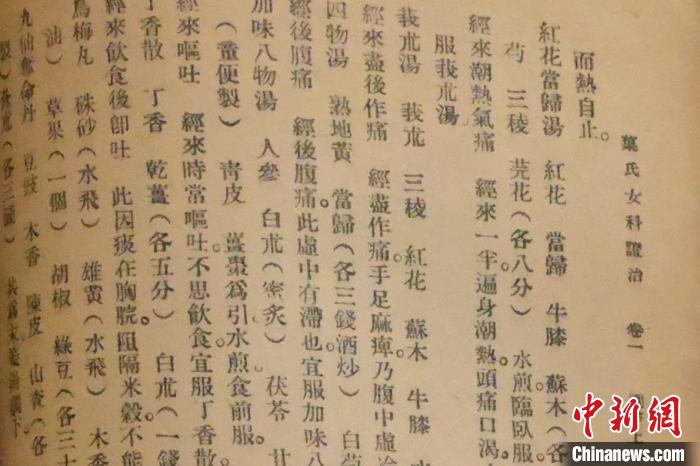 葉氏女科證治 卷一
而熱自止。
紅花當歸湯 紅花 當歸 牛膝 蘇木(各
芍 三稜 芫花(各八分) 水煎臨臥服
經來潮熱氣痛 經來一半遍身潮熱頭痛口渴。
服莪朮湯。
莪朮湯 莪朮 三稜 紅花 蘇木 牛膝
經來盡後作痛 經盡作痛。手足麻痺乃腹中虛
四物湯 熟地黃 當歸(各三錢酒炒) 白芍
經後腹痛 經後腹痛。此虛中有滯也宜服加味八
加味八物湯 人參 白朮(蜜炙) 茯苓 甘
(童便製) 靑皮 薑棗爲引水煎食前服。
經來嘔吐 經來時常嘔吐。不思飲食。宜服丁香散。
丁香散 丁香 乾薑(各五分) 白朮(一錢
經來飲食後卽吐 此因痰在胸脘。阻隔米穀不能
烏梅丸 硃砂(水飛) 雄黃(水飛) 木
油) 草果(一個) 胡椒 綠豆(各三十
九仙奪命丹 豆豉 木香 陳皮 山查(各
製) 蒼朮(各三錢)
中新网
Chinanews.com